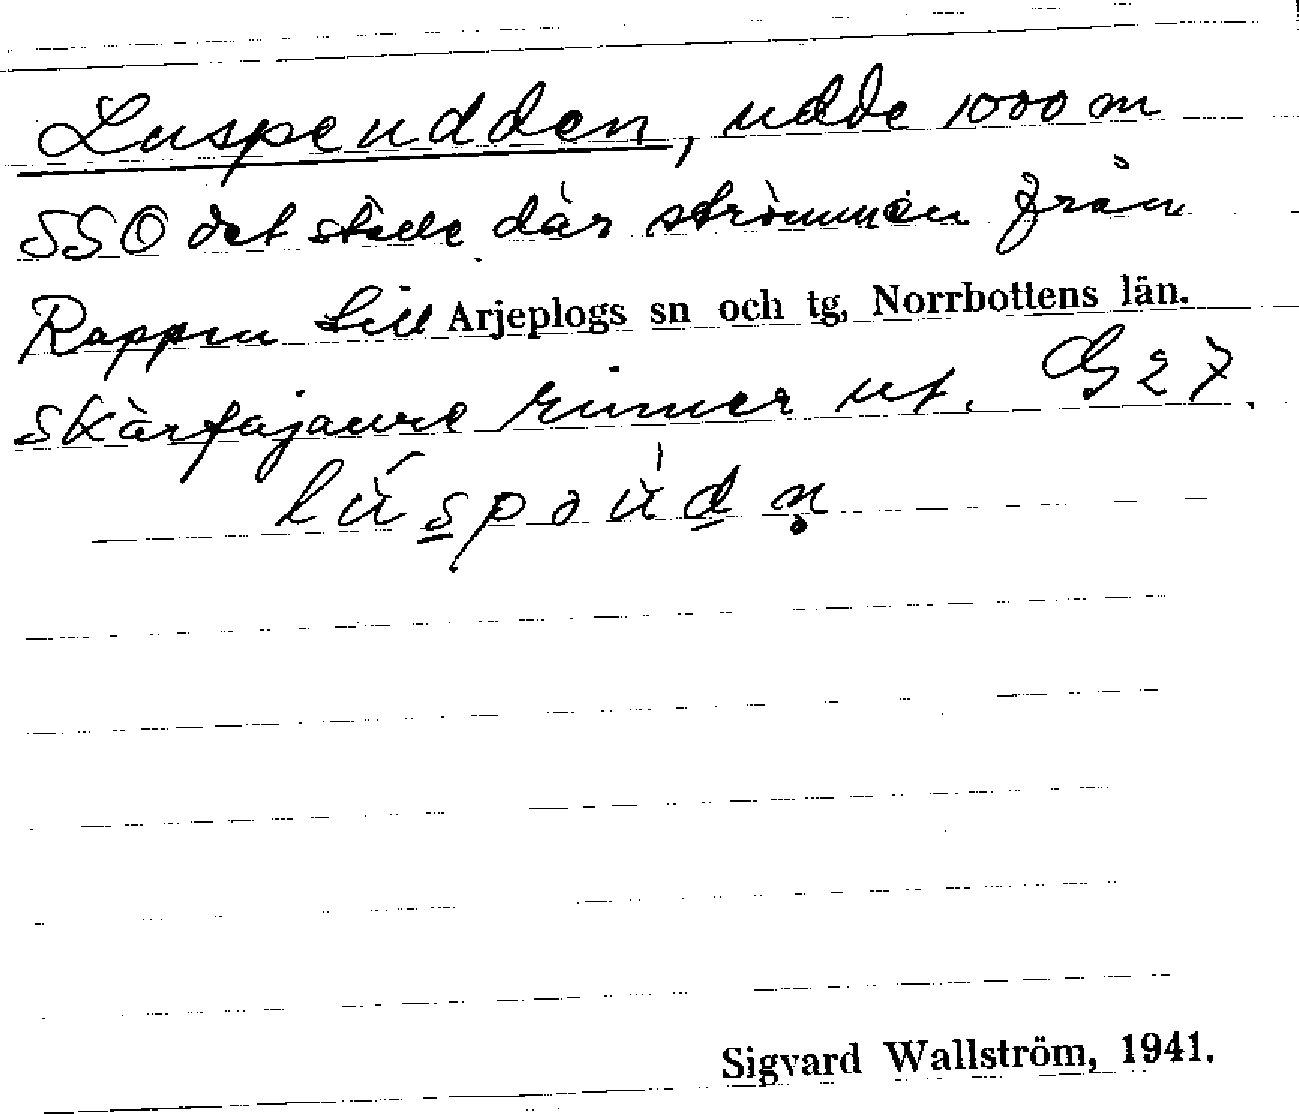 Luspeudden, udde 1000 m
SSO det ställe där strömmen från
Rappen till Arjeplogs sn och tg, Norrbottens län.
Skärfajaure rinner ut. G 27.
Sigvard Wallström, 1941.